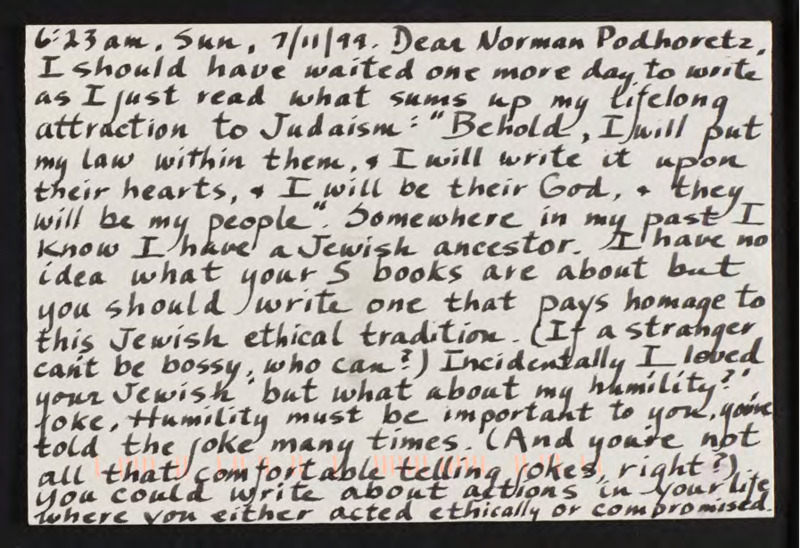 6:23 am, Sun, 7/11/99. Dear Norman Podhoretz,
I should have waited one more day to write
as I just read what sums up my lifelong
attraction to Judaism: "Behold, I will put
my law within them, & I will write it upon
their hearts, & I will be their God, & they
will be my people". Somewhere in my past I
know I have a Jewish ancestor. I have no
idea what your 5 books are about but
you should write one that pays homage to
this Jewish ethical tradition. (If a stranger
can't be bossy, who can?) Incidentally I loved
your Jewish "but what about my humility?"
joke. Humility must be important to you, you've
told the joke many times. (And you're not
all that comfortable telling jokes, right?)
You could write about actions in your life
where you either acted ethically or compromised.